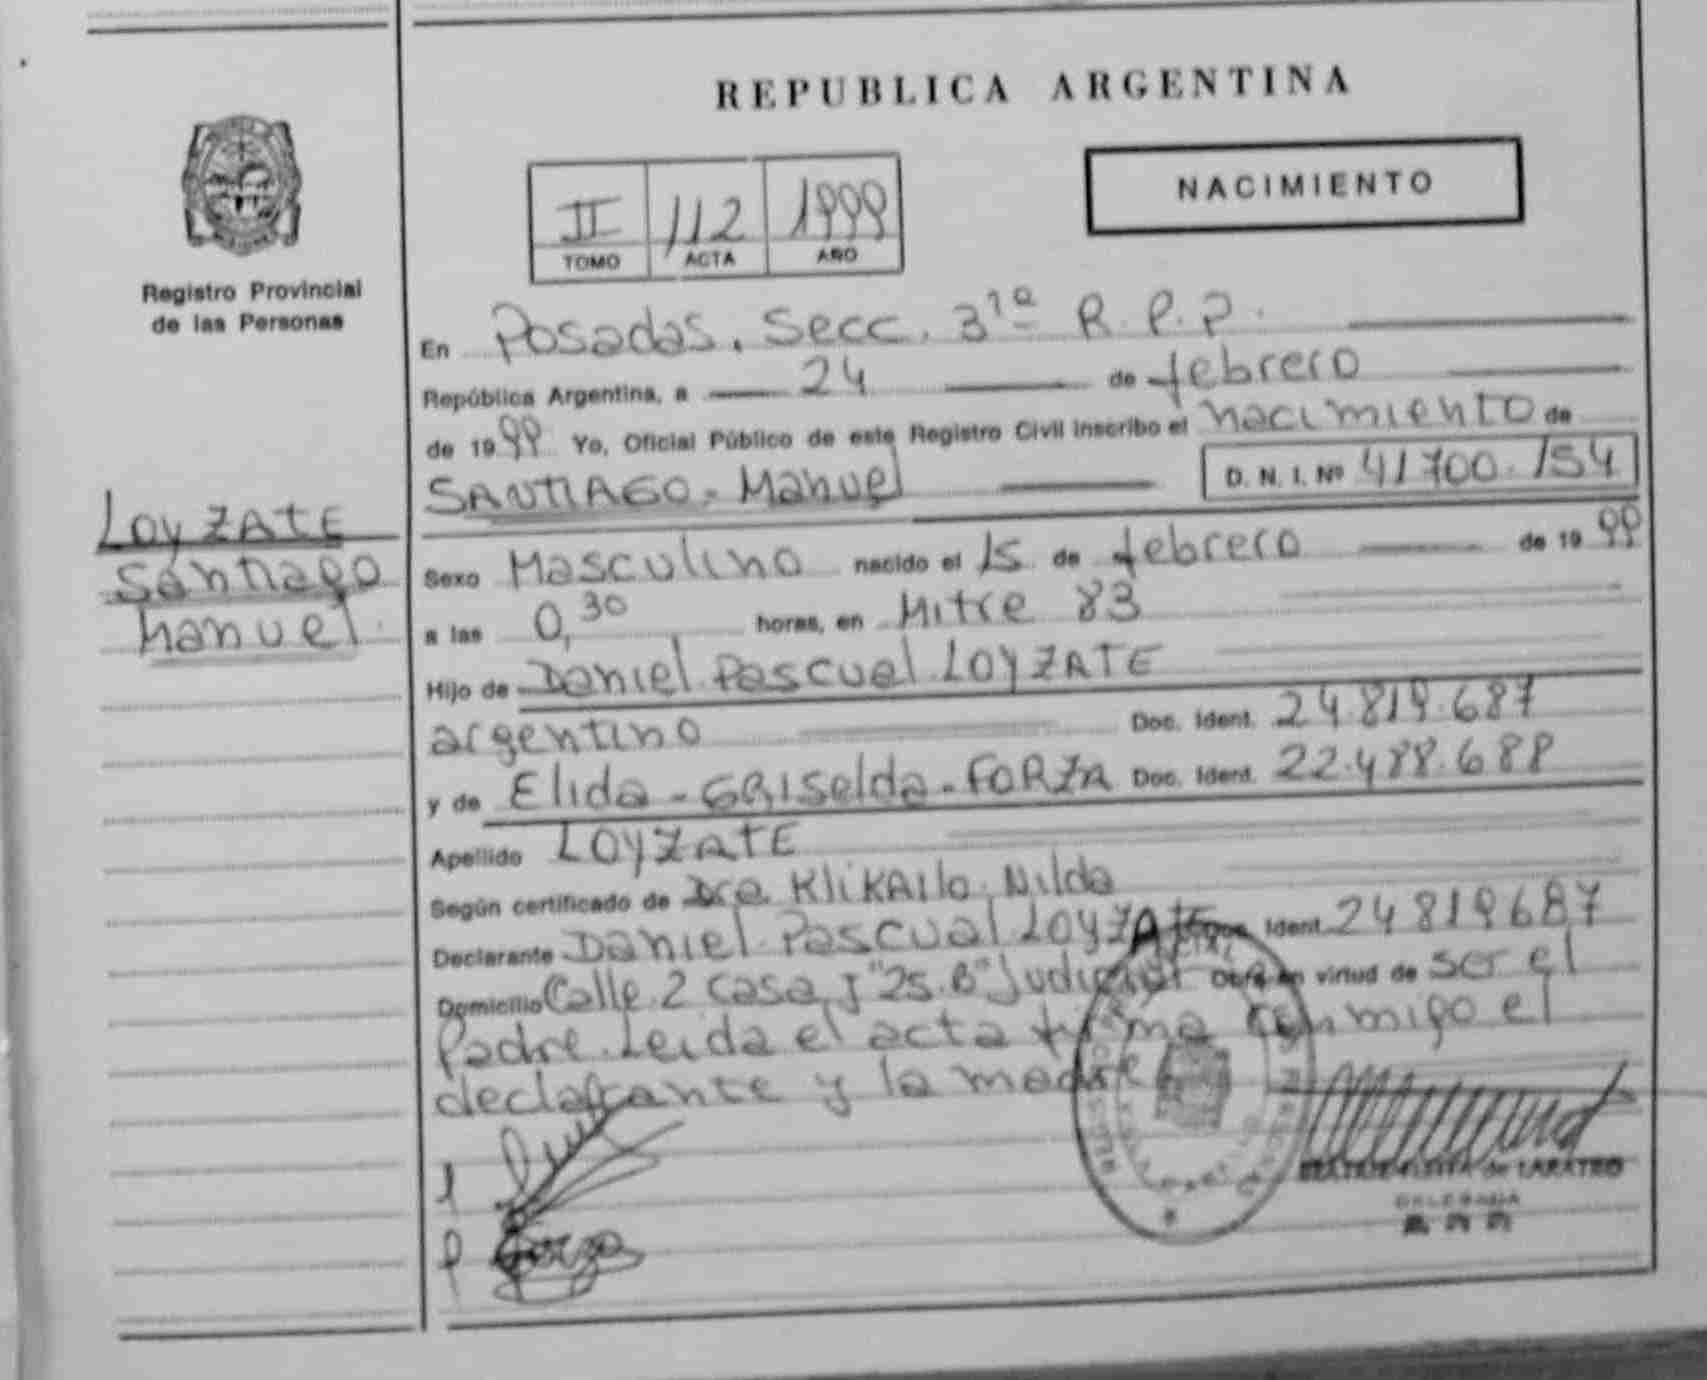 REPUBLICA ARGENTINA
NACIMIENTO
II 112 1999
TOMO ACTA AÑO
Registro Provincial
de las Personas
LOYZATE
Santiago
Manuel
En Posadas, Secc. 3ra R.P.P.
República Argentina, a 24 de febrero
de 1999 Yo, Oficial Público de este Registro Civil inscribo el nacimiento de
SANTIAGO - Manuel D. N. I. Nº 41700.154
Sexo Masculino nacido el 15 de febrero de 1999
a las 0,30 horas, en Mitre 83
Hijo de Daniel Pascual LOYZATE
argentino Doc. Ident. 24.819.687
y de Elida - Griselda - FORZA Doc. Ident. 22.488.688
Apellido LOYZATE
Según certificado de Dra. Klikailo, Nilda
Declarante Daniel Pascual LOYZATE Doc. Ident. 24819687
Domicilio Calle 2 casa "25.B" Judicial Obra en virtud de ser el
Padre. Leida el acta firma conmigo el
declarante y la madre
Forza
de LARATRO
DELEGADA